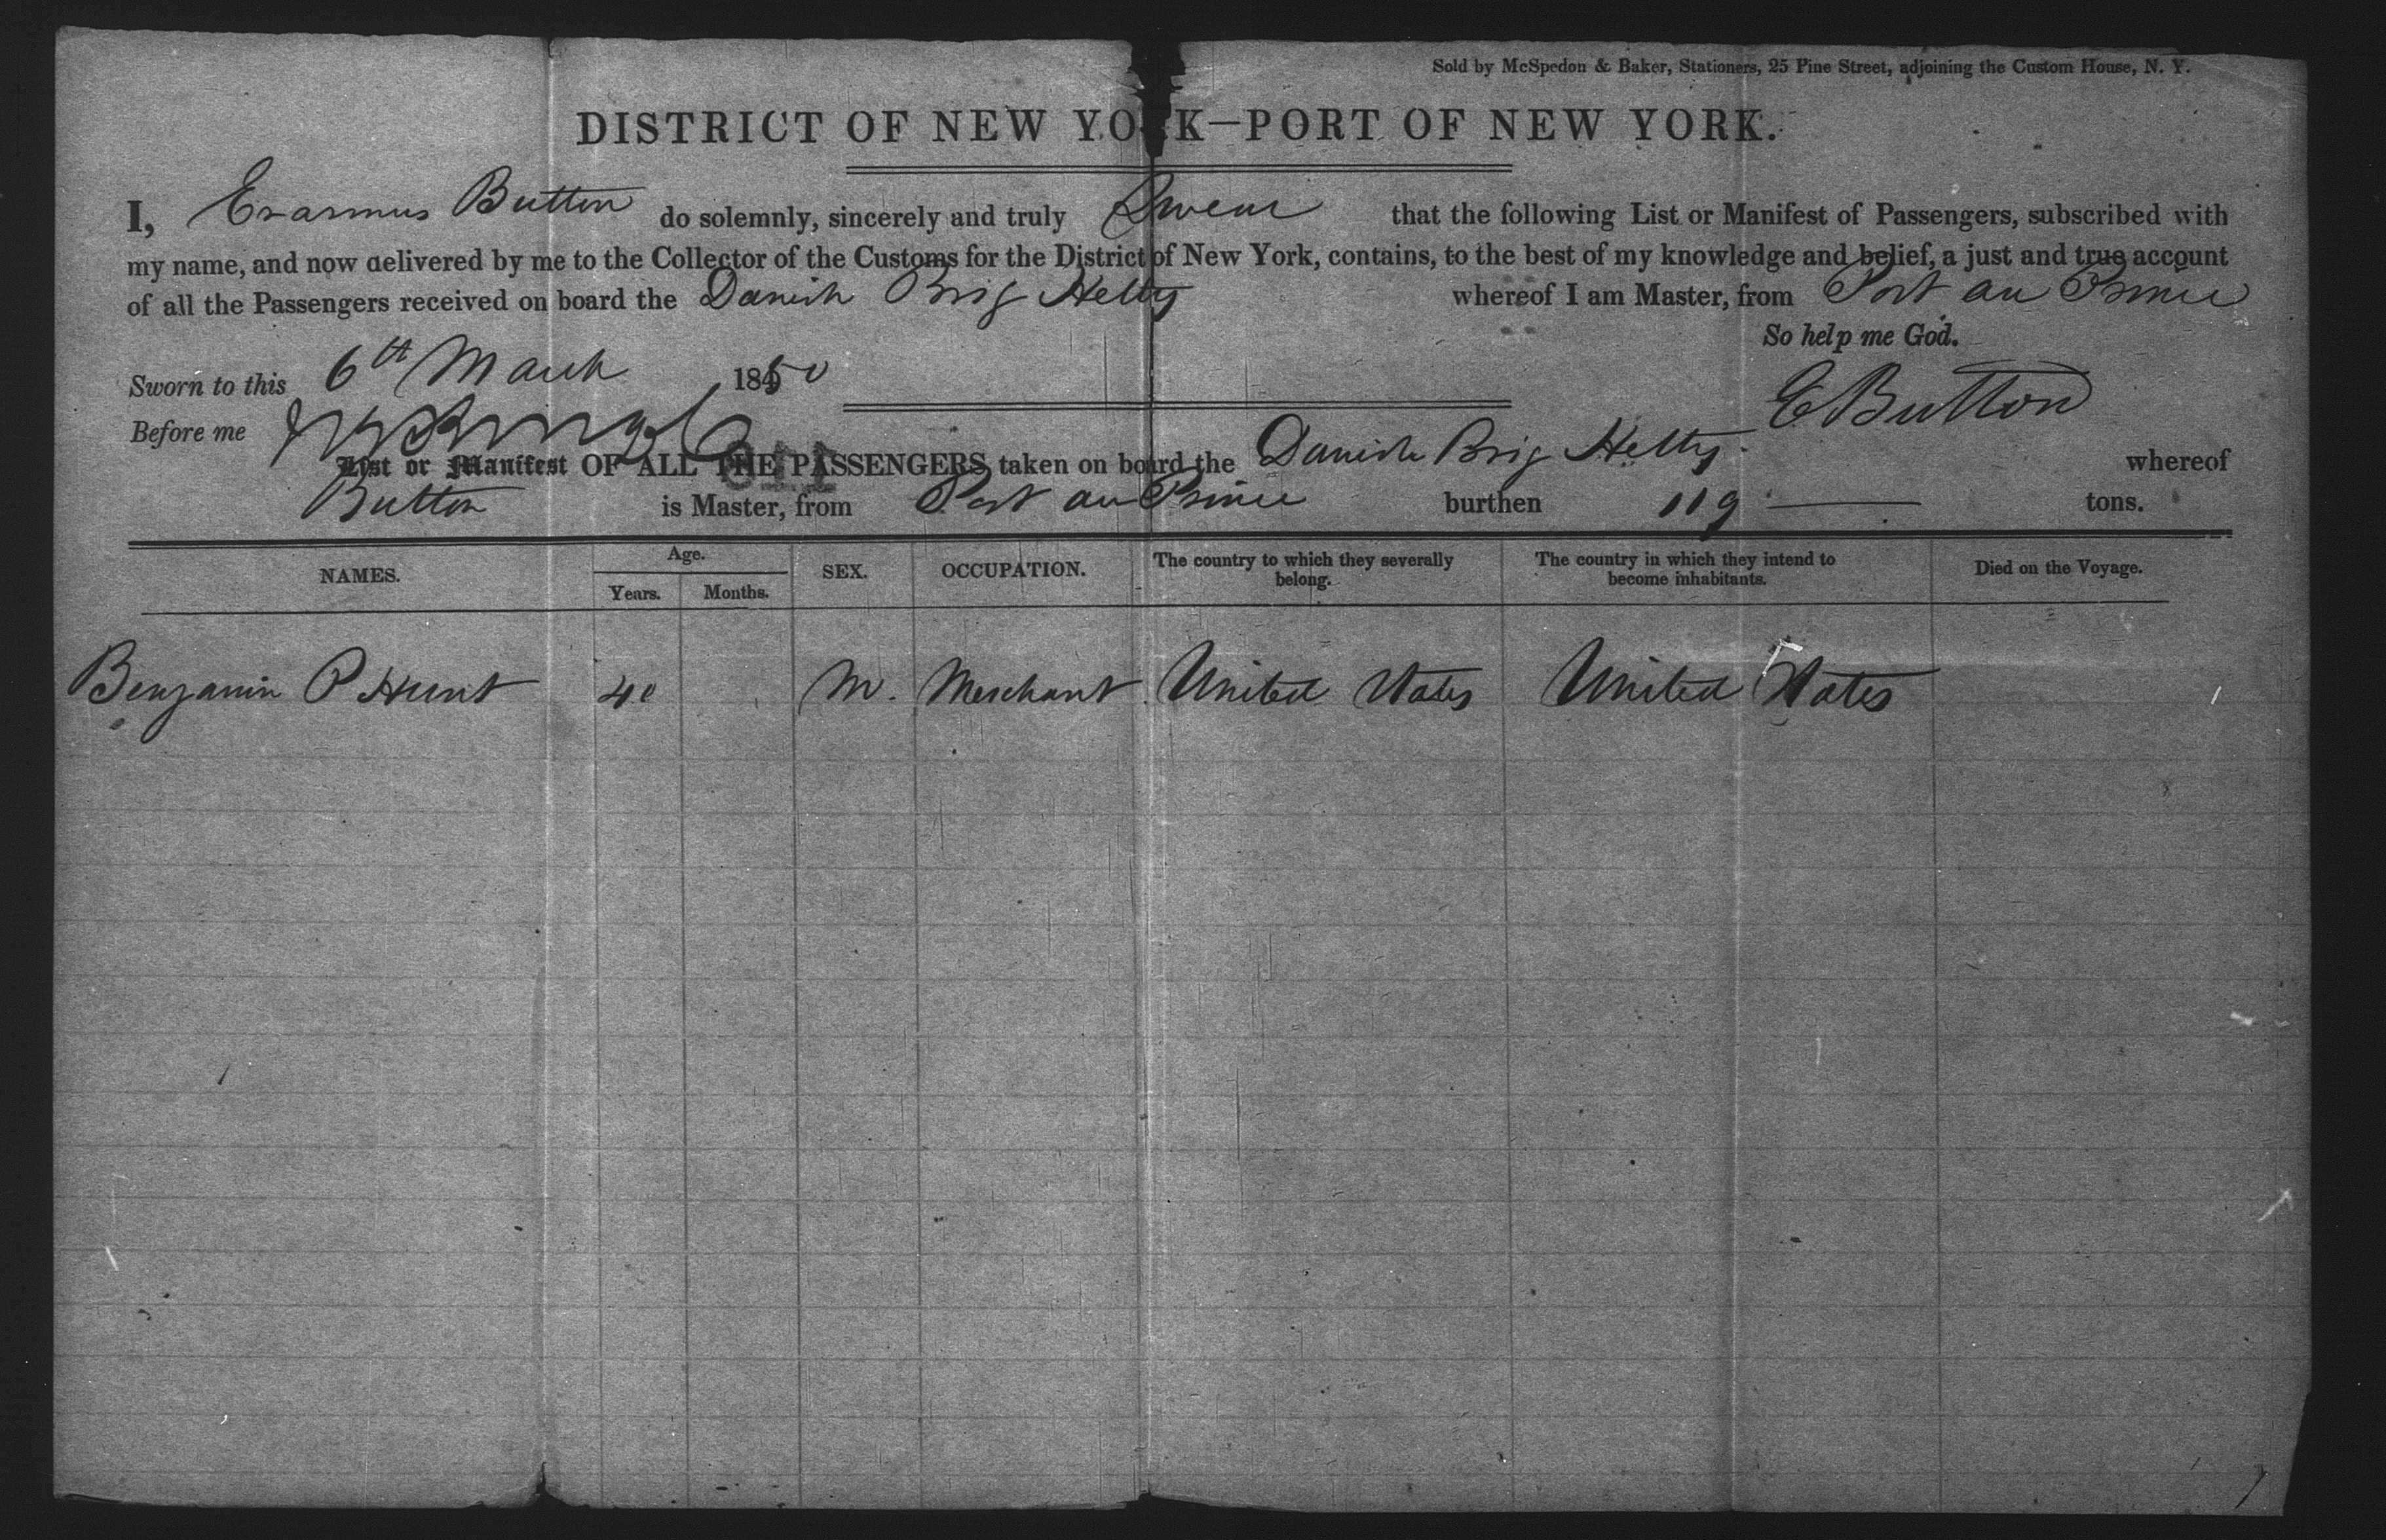 Sold by McSpedon & Baker, Stationers, 25 Pine Street, adjoining the Custom House, N. Y.
DISTRICT OF NEW YORK—PORT OF NEW YORK.
I, Erasmus Button do solemnly, sincerely and truly Swear that the following List or Manifest of Passengers, subscribed with
my name, and now delivered by me to the Collector of the Customs for the District of New York, contains, to the best of my knowledge and belief, a just and true account
of all the Passengers received on board the Danish Brig Hetty whereof I am Master, from Port au Prince
So help me God.
Sworn to this 6th March 1850
E Button
Before me
List or Manifest OF ALL THE PASSENGERS taken on board the Danish Brig Hetty whereof
Button is Master, from Port au Prince burthen 119 tons.
NAMES. Age. SEX. OCCUPATION. The country to which they severally belong. The country in which they intend to become inhabitants. Died on the Voyage.
Years. Months.
Benjamin P Hunt 40 M. Merchant United States United States